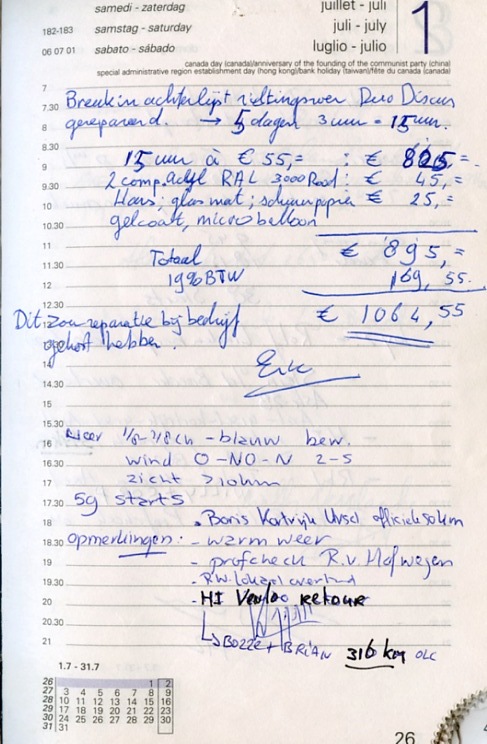 samedi - zaterdag juillet - juli 1
182-183 samstag - saturday juli - july
06 07 01 sabato - sábado luglio - julio
canada day (canada)/anniversary of the founding of the communist party (china)
special administrative region establishment day (hong kong)/bank holiday (taiwan)/fête du canada (canada)
7
7.30 Breuk in achterlijst richtingsroer Duo Discus
8 gerepareerd. → 5 dagen 3 uur = 15 uur.
8.30
9 15 uur à € 55,= : € 825,=
9.30 2 comp. acryl RAL 3000 Rood : € 45,=
10 Hars; glasmat; schuurpapier € 25,=
10.30 gelcoat, microballoon
11 Totaal € 895,=
11.30 19% BTW 169,55
12
12.30 Dit zou reparatie bij bedrijf € 1064,55
gekost hebben.
14 Erik
14.30
15
15.30
16 Weer 1/8-7/8 Cu - blauw bew.
16.30 wind O-NO-N 2-5
17 zicht >10km
17.30 59 starts
18 . Boris Kortrijk 50km
18.30 opmerkingen: - warm weer
19 - profcheck R.v. Hofwegen
19.30 - R.W.
20 - HI Venloo retour
20.30
21 ↳ BOZZE + BRIAN 316 km OLC
1.7 - 31.7
26 1 2
27 3 4 5 6 7 8 9
28 10 11 12 13 14 15 16
29 17 18 19 20 21 22 23
30 24 25 26 27 28 29 30
31 31
26